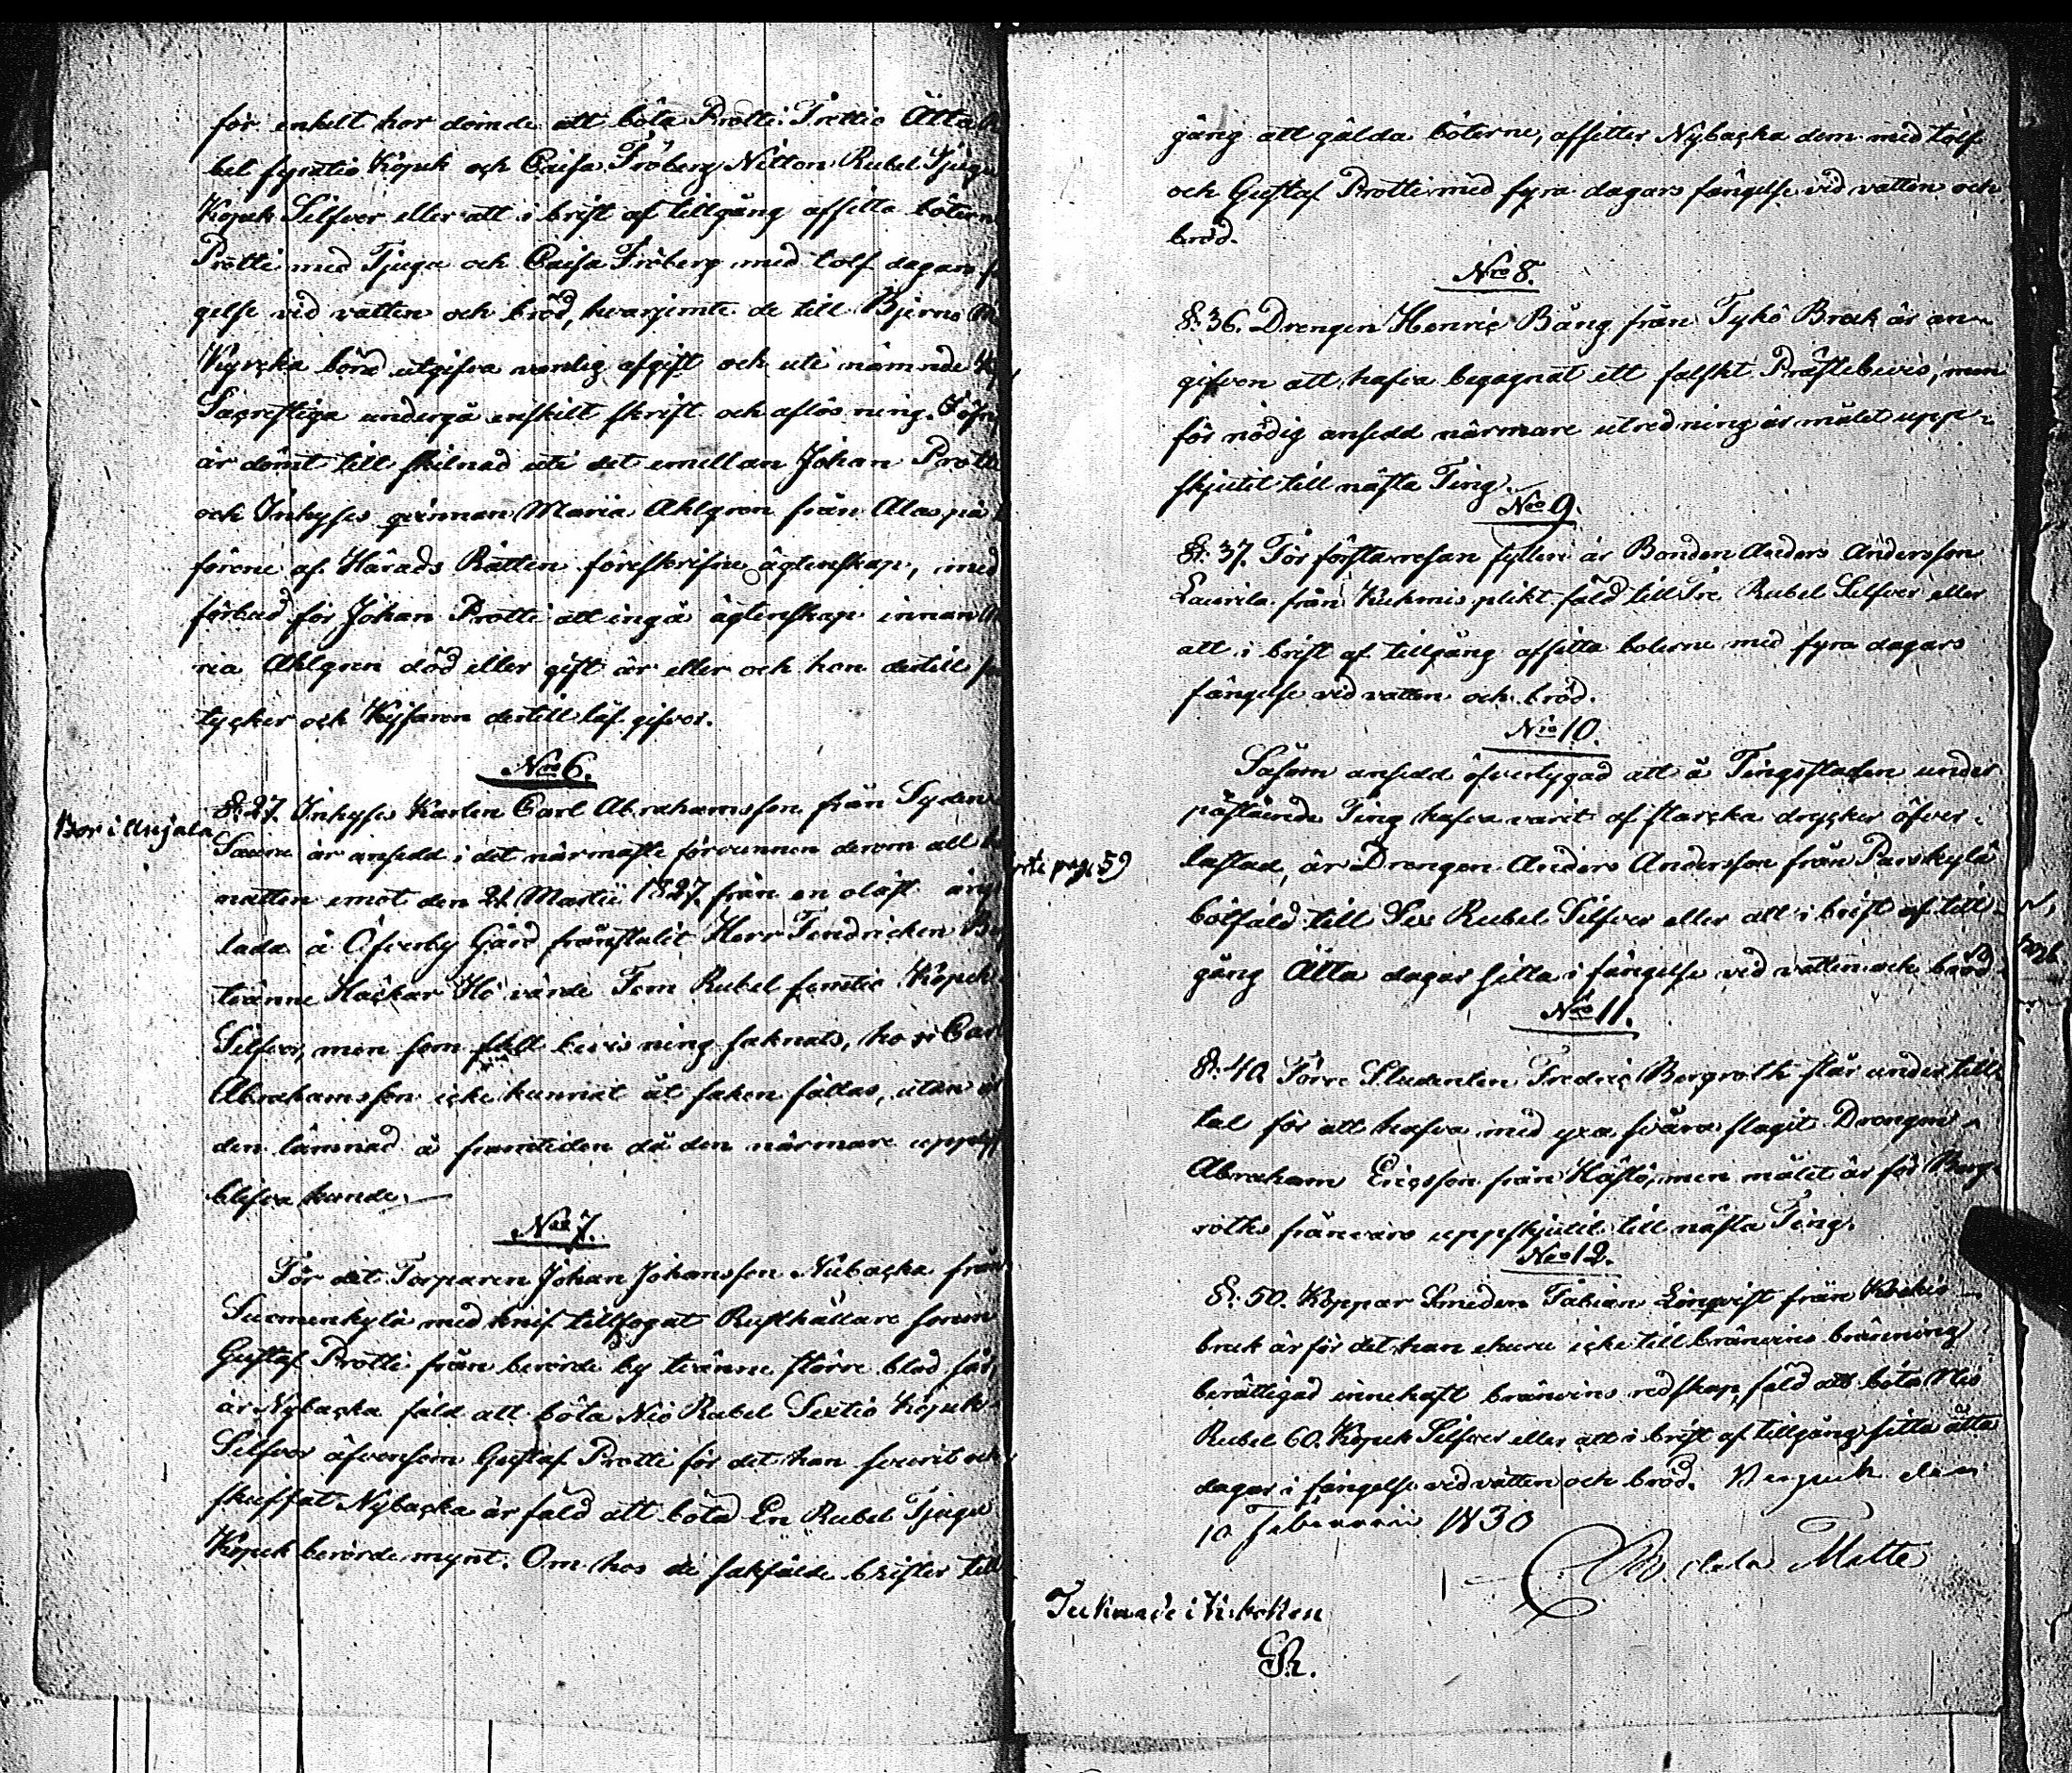 för enkelt hor dömde att böta Protti Trettio Åtta
bel fyratio Kopek och Caisa Fröberg Nitton Rubel Tjugu
Kopek Silfver eller att i brist af tillgång afsitta bötern
Protti med Tjugu och Caisa Fröberg med tolf dagars
gelse vid vatten och bröd, hvarjemte de till Bjerno
Kyrcka böra utgifva vanlig afgift och uti nämnde
Sacrestiga undergå enskilt skrift och aflösning.
är dömt till skilnad uti det emellan Johan Protti
och Inhyses qvinnan Maria Ahlgren från Alaspä
förene af Härads Rätten föreskrifne ägtenskap, med
förbud för Johan Protti att ingå ägtenskap innan
ria Ahlgren död eller gift är eller och hon dertill
tycker och Kejsaren dertill låf gifver.
Nro 6.
Bor i Anjala
§. 27. Inhyses Karlen Carl Abrahamsson från
är ansedd i det närmaste förvunnen derom att
natten emot den 21 Martii 1827. från en oläst äng
lada å Öfverby Gård frånstulit Herr Fendricken
tvänne Häckar Hö värde Fem Rubel femtio Kopek
Silfver, men som full bevisning saknats, har Carl
Abrahamsson icke kunnat åt saken fällas, utan
den lämnad å framtiden då den närmare upply
blifva kunde.
Nro 7.
För det Torparen Johan Johansson Nübacka från
Suomenkylä med knif tillfogat Rusthållare sonen
Gustaf Protti från berörde by tvänne större blod sår,
är Nybacka fäld att böta Nio Rubel Sextio Kopek
Silfver äfvensom Gustaf Protti för det han svurit och
skuffat Nybacka är fäld att böta En Rubel Tjugu
Kopek berörde mynt. Om hos de sakfälde brister till
gång att gälda böterne, afsitter Nybacka dem med tolf
och Gustaf Protti med fyra dagars fängelse vid vatten och
bröd.
Nro 8.
§. 36. Drengen Henric Bång från Tykö Bruk är an
gifven att hafva begagnat ett falskt Prästebevis, men
för nödig ansedd närmare utredning är målet upp
skjutit till nästa Ting.
Nro 9.
§. 37. För första resan fylleri är Bonden Anders Andersson
Laurila från Kuhmis plikt fäld till Tre Rubel Silfver eller
att i brist af tillgång afsitta böterne med fyra dagars
fängelse vid vatten och bröd.
Nro 10.
Såsom ansedd öfvertygad att å Tingsstaden under
påstående Ting hafva varit af starcka drycker öfver
lastad, är Drengen Anders Andersson från Parskylä
pag. 59
bötfäld till Sex Rubel Silfver eller att i brist af till
gång Åtta dagar sitta i fängelse vid vatten och bröd
Nro 11.
§. 40 Förre Studenten Fredric Bergroth står under till
tal för att hafva med yxa svåra slagit Drengen
Abraham Ericsson från Hästö, men målet är för Berg
roths frånvaro uppskjutit till nästa Ting.
Nro 12.
§. 50. Koppar Smeden Fabian Lingvist från Koskis
bruk är för det han ehuru icke till bränvins bränning
berättigad innehaft bränvins redskap, fäld att böta Nio
Rubel 60. Kopek Silfver eller att i brist af tillgång sitta åtta
dagar i fängelse vid vatten och bröd. den
10 Februari 1830
Matte